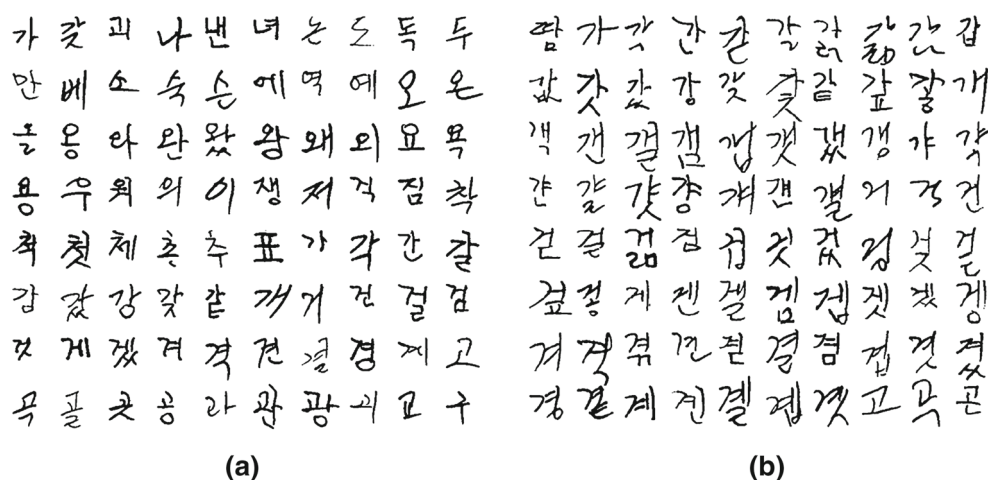 가 갖 괴 나 낸 녀 는 도 독 두
만 베 소 숙 슨 에 역 예 오 온
올 옹 와 완 왔 왕 왜 외 요 욕
용 우 의 이 쟁 저 직 짐 착
책 첫 체 촌 추 표 가 각 간 갈
감 갔 강 갖 같 개 거 건 걸 검
것 게 겠 겨 격 견 결 경 계 고
곡 골 곳 공 과 관 광 괴 교 구
(a)
땀 가 각 간 갇 갈 갉 갊 감 갑
값 갓 갔 강 갖 갗 같 갚 갛 개
객 갠 갤 갬 갭 갯 갰 갱 갸 갹
갼 걀 걋 걍 걔 걘 걜 거 걱 건
걷 걸 걺 검 겁 것 겄 겅 겆 겉
겊 겋 게 겐 겔 겜 겝 겟 겠 겡
겨 격 겪 견 겯 결 겸 겹 겻 겼
경 곁 계 곈 곌 곕 곗 고 곡 곤
(b)